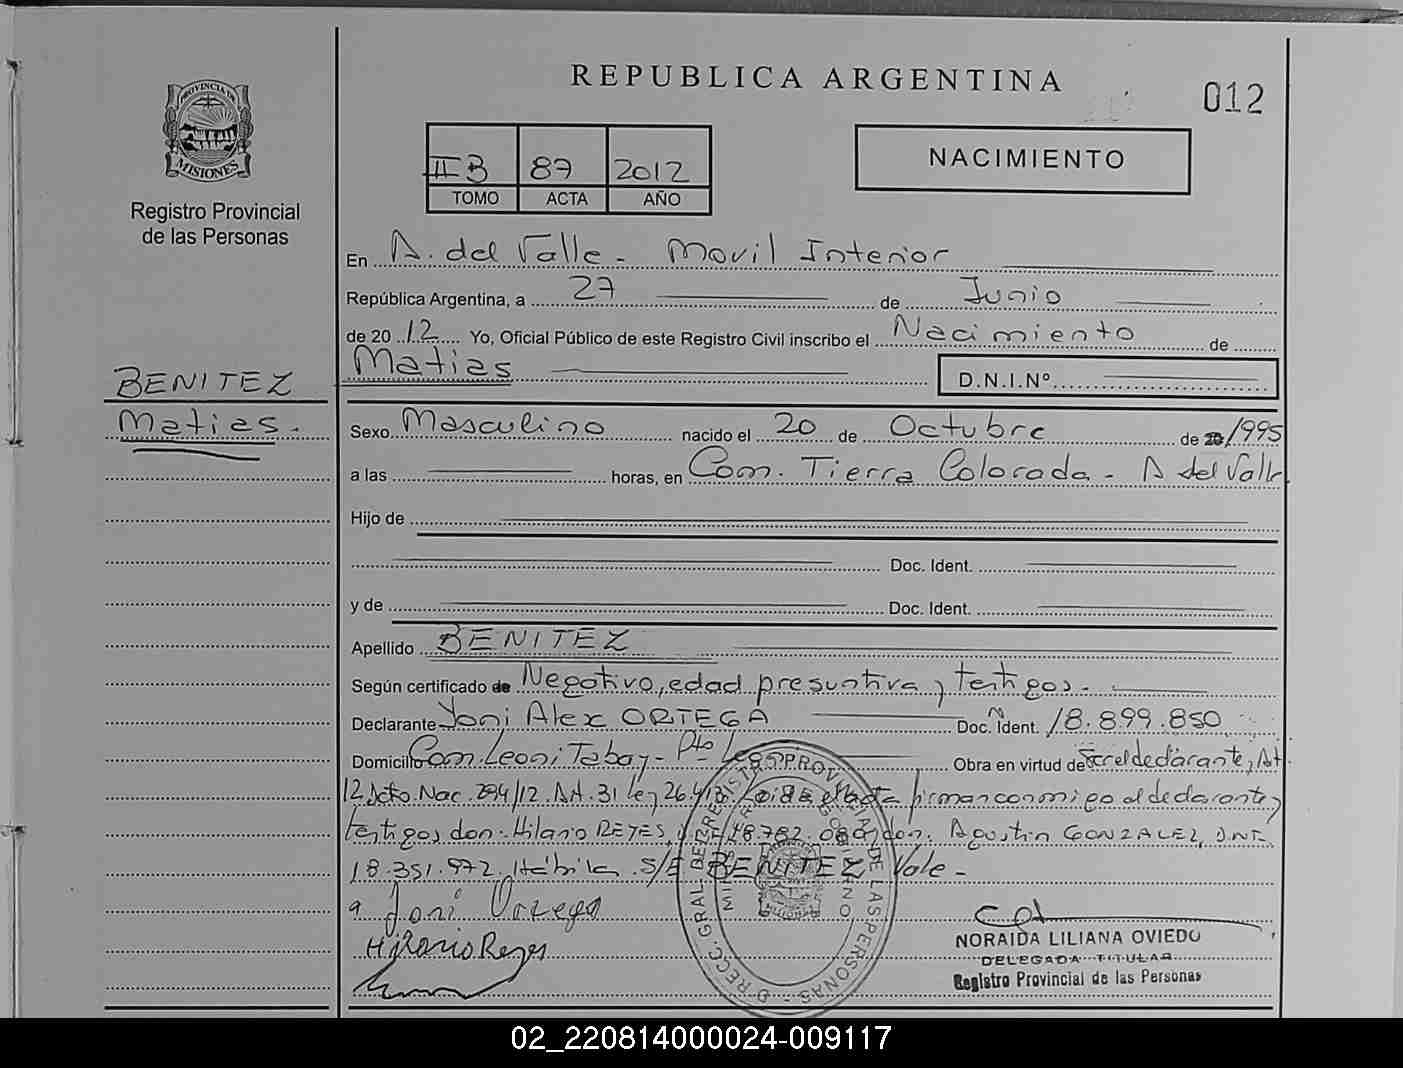 REPUBLICA ARGENTINA
012
PROVINCIA DE
MISIONES
Registro Provincial
de las Personas
II B 87 2012
TOMO ACTA AÑO
NACIMIENTO
En A. del Valle - Movil Interior
República Argentina, a 27 de Junio
de 20 12 Yo, Oficial Público de este Registro Civil inscribo el Nacimiento de
Matias
D.N.I.Nº
BENITEZ
Matias.
Sexo Masculino nacido el 20 de Octubre de 20 1995
a las horas, en Com. Tierra Colorada - A del Valle
Hijo de
Doc. Ident.
y de Doc. Ident.
Apellido BENITEZ
Según certificado de Negativo, edad presuntiva y testigos.
Declarante Joni Alex ORTEGA Doc. Ident. 18.899.850
Domicilio Com. Leoni Tabay - Pto Leoni Obra en virtud de ser el declarante, Art.
12 Dcto. Nac. 294/12. Art. 31 ley 26.413. Leida el acta firman conmigo el declarante y
testigos don: Hilario REYES, 18.782.080 y don. Agustin GONZALEZ, D.N.I.
18.351.972. Hábiles. S/E BENITEZ Vale -
Joni Ortega
Hilario Reyes
DIRECC. GRAL. DEL REGISTRO PROVINCIAL DE LAS PERSONAS
MINISTERIO GOBIERNO
NORAIDA LILIANA OVIEDO
DELEGADA TITULAR
Registro Provincial de las Personas
02_220814000024-009117